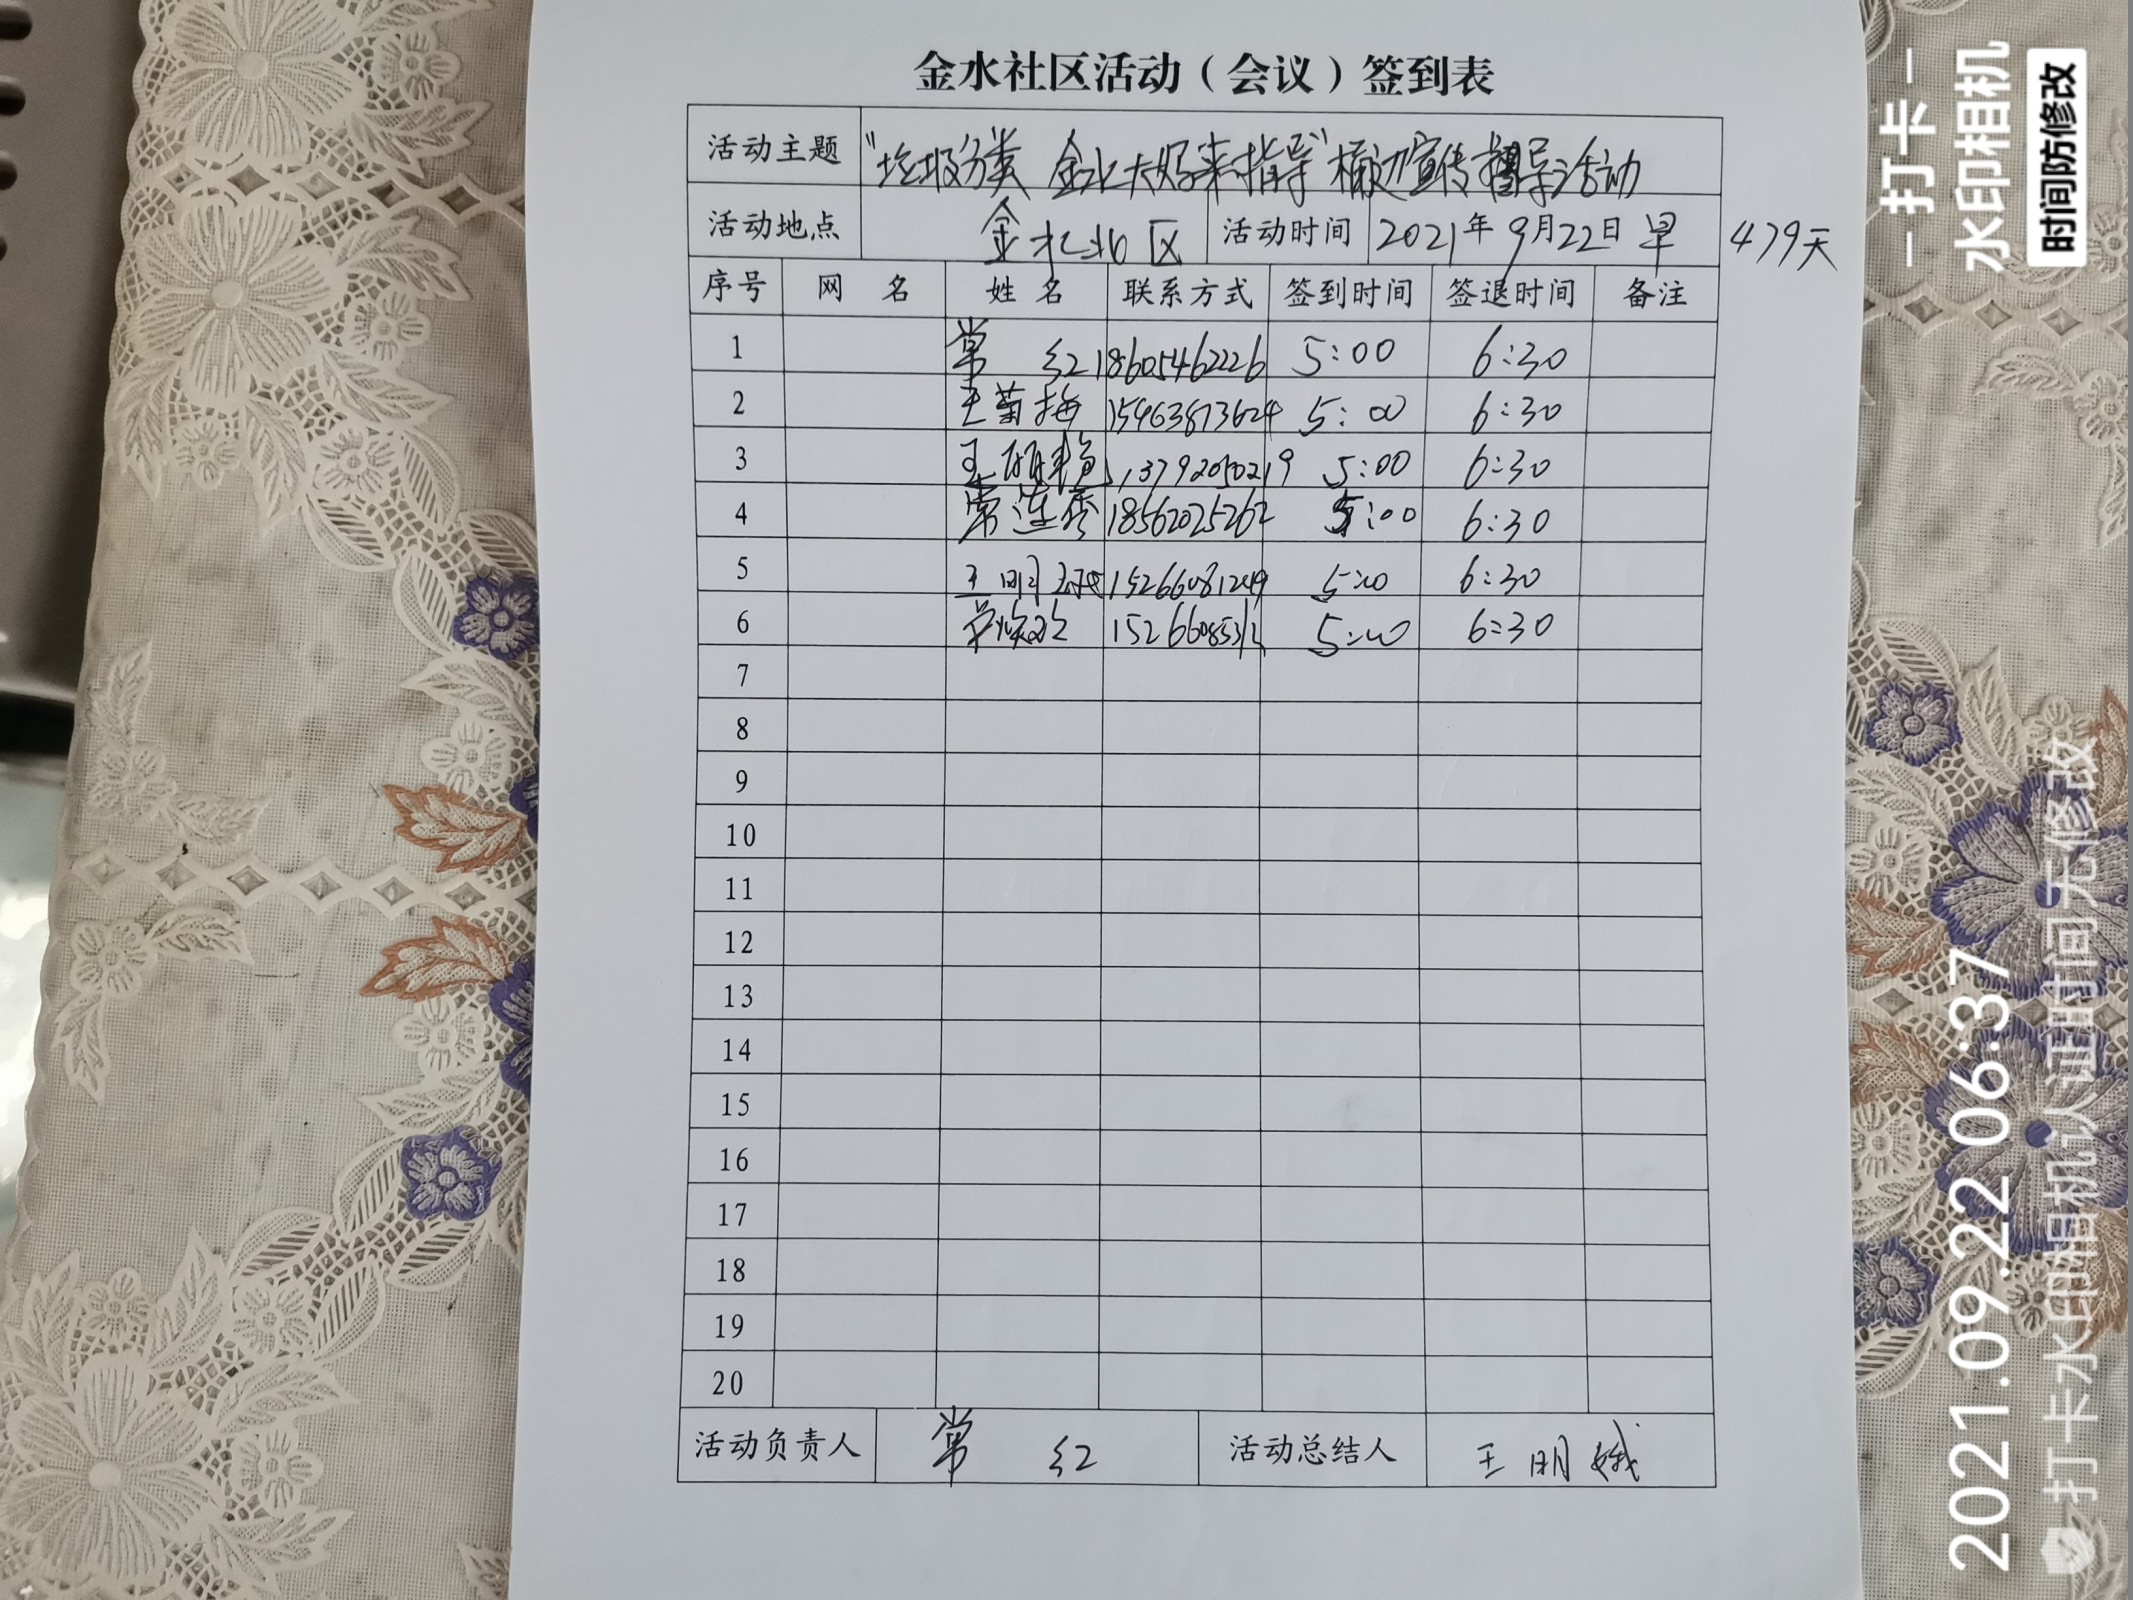 金水社区活动（会议）签到表
活动主题 "垃圾分类 金水大嫂来指导"桶边宣传督导活动
活动地点 金水北区 活动时间 2021年9月22日 早 479天
序号 网 名 姓 名 联系方式 签到时间 签退时间 备注
1 常 红 18605462226 5:00 6:30
2 王菊梅 15963873624 5:00 6:30
3 王丽艳 13792050219 5:00 6:30
4 常连香 18562025262 5:00 6:30
5 王明娥 15266081249 5:00 6:30
6 5:00 6:30
7
8
9
10
11
12
13
14
15
16
17
18
19
20
活动负责人 常 红 活动总结人 王明娥
打卡
水印相机
时间防修改
2021.09.22 06:37
打卡水印相机认证时间无修改